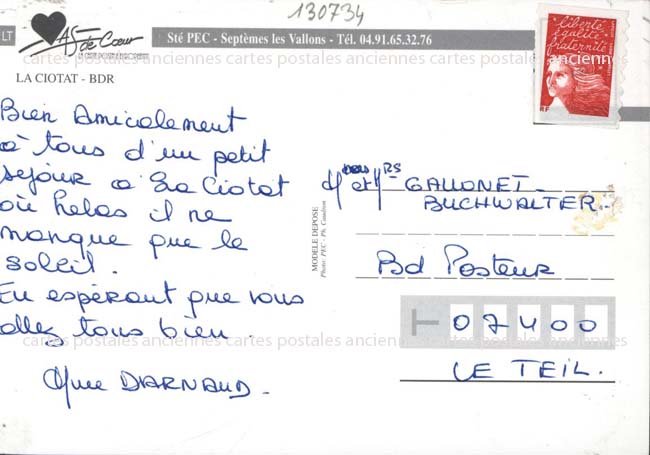 130734
LT
AS de Cœur
Sté PEC - Septèmes les Vallons - Tél. 04.91.65.32.76
liberté
égalité
fraternité
RF
cartes postales anciennes cartes postales anciennes cartes postales anciennes
LA CIOTAT - BDR
Bien Amicalement
à tous d'un petit
séjour à La Ciotat
où hélas il ne
manque que le
soleil.
En espérant que vous
allez tous bien.
Mme DARNAUD.
MODELE DEPOSE
Photo: PEC - Ph. Caudron
GALLONET-
BUCHWALTER.
Bd Pasteur
07400
cartes postales anciennes cartes postales anciennes cartes postales anciennes
LE TEIL.